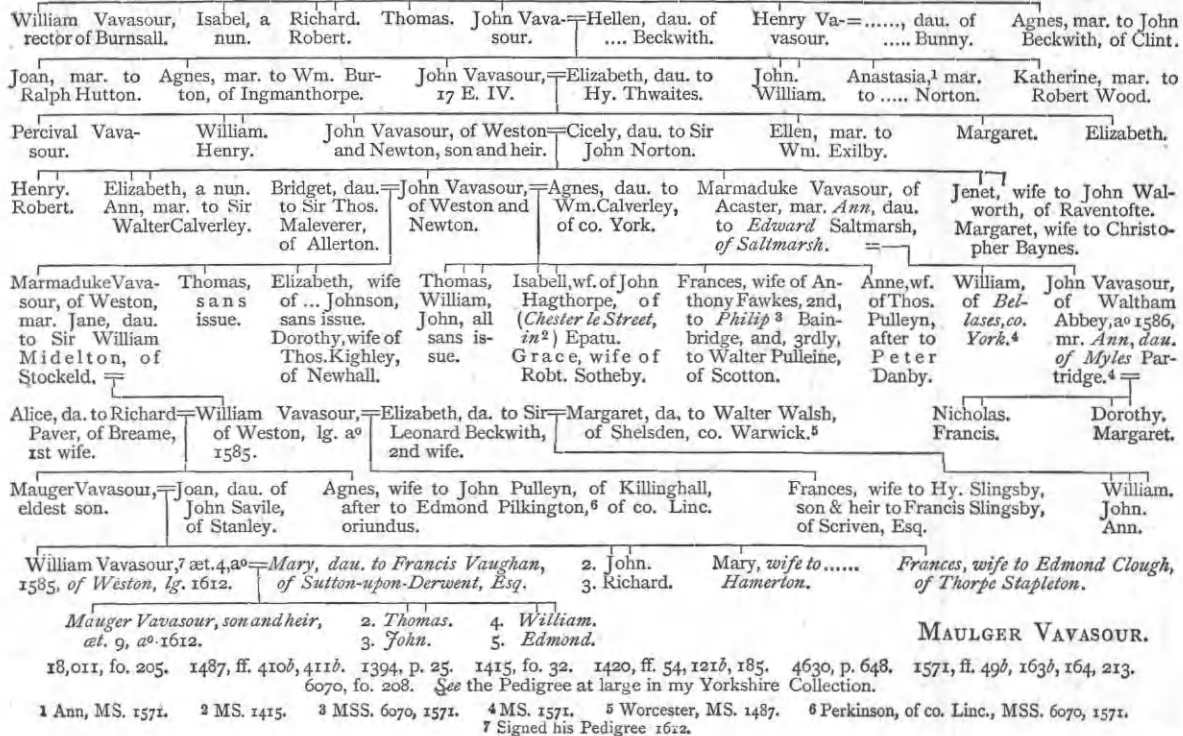 William Vavasour, rector of Burnsall.
Isabel, a nun.
Richard. Robert.
Thomas.
John Vava-
sour.
Hellen, dau. of
.... Beckwith.
Henry Va-
vasour.
......, dau. of
..... Bunny.
Agnes, mar. to John
Beckwith, of Clint.
Joan, mar. to
Ralph Hutton.
Agnes, mar. to Wm. Bur-
ton, of Ingmanthorpe.
John Vavasour,
17 E. IV.
Elizabeth, dau. to
Hy. Thwaites.
John.
William.
Anastasia,¹ mar.
to ..... Norton.
Katherine, mar. to
Robert Wood.
Percival Vava-
sour.
William.
Henry.
John Vavasour, of Weston
and Newton, son and heir.
Cicely, dau. to Sir
John Norton.
Ellen, mar. to
Wm. Exilby.
Margaret.
Elizabeth.
Henry.
Robert.
Elizabeth, a nun.
Ann, mar. to Sir
Walter Calverley.
Bridget, dau.
to Sir Thos.
Maleverer,
of Allerton.
John Vavasour,
of Weston and
Newton.
Agnes, dau. to
Wm. Calverley,
of co. York.
Marmaduke Vavasour, of
Acaster, mar. Ann, dau.
to Edward Saltmarsh,
of Saltmarsh. =
Jenet, wife to John Wal-
worth, of Raventofte.
Margaret, wife to Christo-
pher Baynes.
Marmaduke Vava-
sour, of Weston,
mar. Jane, dau.
to Sir William
Midelton, of
Stockeld. =
Thomas,
sans
issue.
Elizabeth, wife
of ... Johnson,
sans issue.
Dorothy, wife of
Thos. Kighley,
of Newhall.
Thomas,
William,
John, all
sans is-
sue.
Isabell, wf. of John
Hagthorpe, of
(Chester le Street,
in²) Epatu.
Grace, wife of
Robt. Sotheby.
Frances, wife of An-
thony Fawkes, 2nd,
to Philip³ Bain-
bridge, and, 3rdly,
to Walter Pulleine,
of Scotton.
Anne, wf.
of Thos.
Pulleyn,
after to
Peter
Danby.
William,
of Bel-
lases, co.
York.⁴
John Vavasour,
of Waltham
Abbey, aº 1586,
mr. Ann, dau.
of Myles Par-
tridge.⁴ =
Alice, da. to Richard
Paver, of Breame,
1st wife.
William Vavasour,
of Weston, lg. aº
1585.
Elizabeth, da. to Sir
Leonard Beckwith,
2nd wife.
Margaret, da. to Walter Walsh,
of Shelsden, co. Warwick.⁵
Nicholas.
Francis.
Dorothy.
Margaret.
Mauger Vavasour,
eldest son.
Joan, dau. of
John Savile,
of Stanley.
Agnes, wife to John Pulleyn, of Killinghall,
after to Edmond Pilkington,⁶ of co. Linc.
oriundus.
Frances, wife to Hy. Slingsby,
son & heir to Francis Slingsby,
of Scriven, Esq.
William.
John.
Ann.
William Vavasour,⁷ æt. 4, aº
1585, of Weston, lg. 1612.
Mary, dau. to Francis Vaughan,
of Sutton-upon-Derwent, Esq.
2. John.
3. Richard.
Mary, wife to ......
Hamerton.
Frances, wife to Edmond Clough,
of Thorpe Stapleton.
Mauger Vavasour, son and heir,
æt. 9, aº. 1612.
2. Thomas.
3. John.
4. William.
5. Edmond.
MAULGER VAVASOUR.
18,011, fo. 205. 1487, ff. 410b, 411b. 1394, p. 25. 1415, fo. 32. 1420, ff. 54, 121b, 185. 4630, p. 648. 1571, ff. 49b, 163b, 164, 213.
6070, fo. 208. See the Pedigree at large in my Yorkshire Collection.
1 Ann, MS. 1571. 2 MS. 1415. 3 MSS. 6070, 1571. 4 MS. 1571. 5 Worcester, MS. 1487. 6 Perkinson, of co. Linc., MSS. 6070, 1571.
7 Signed his Pedigree 1612.